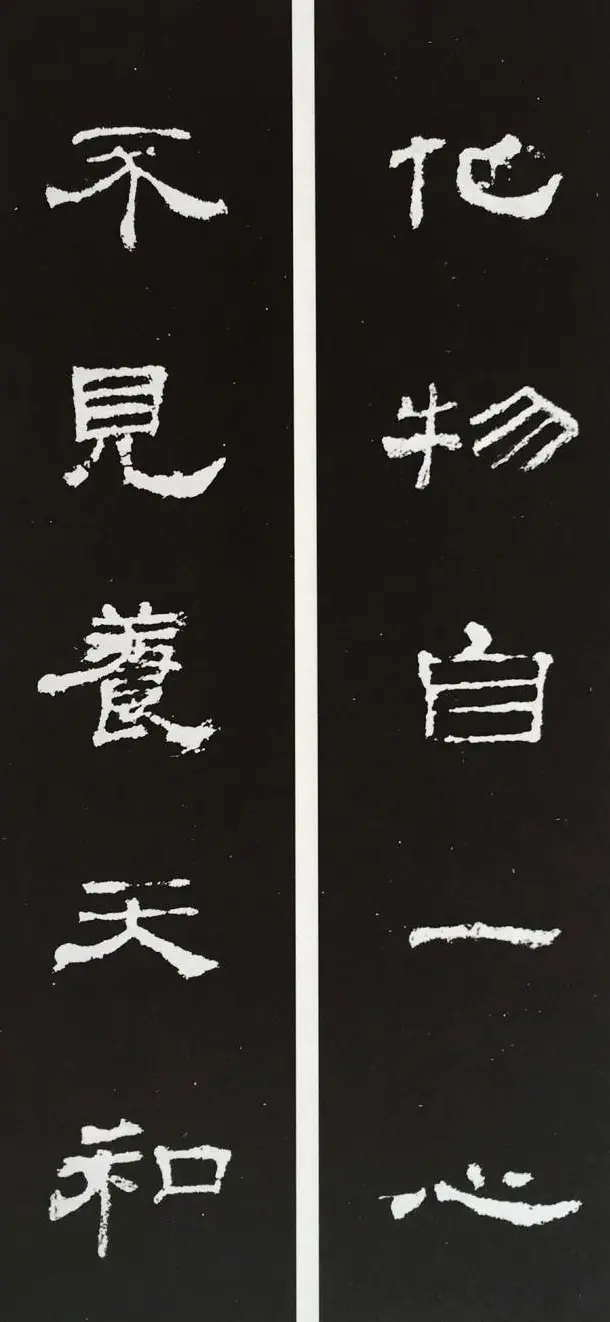 化物自一心
不見養天和